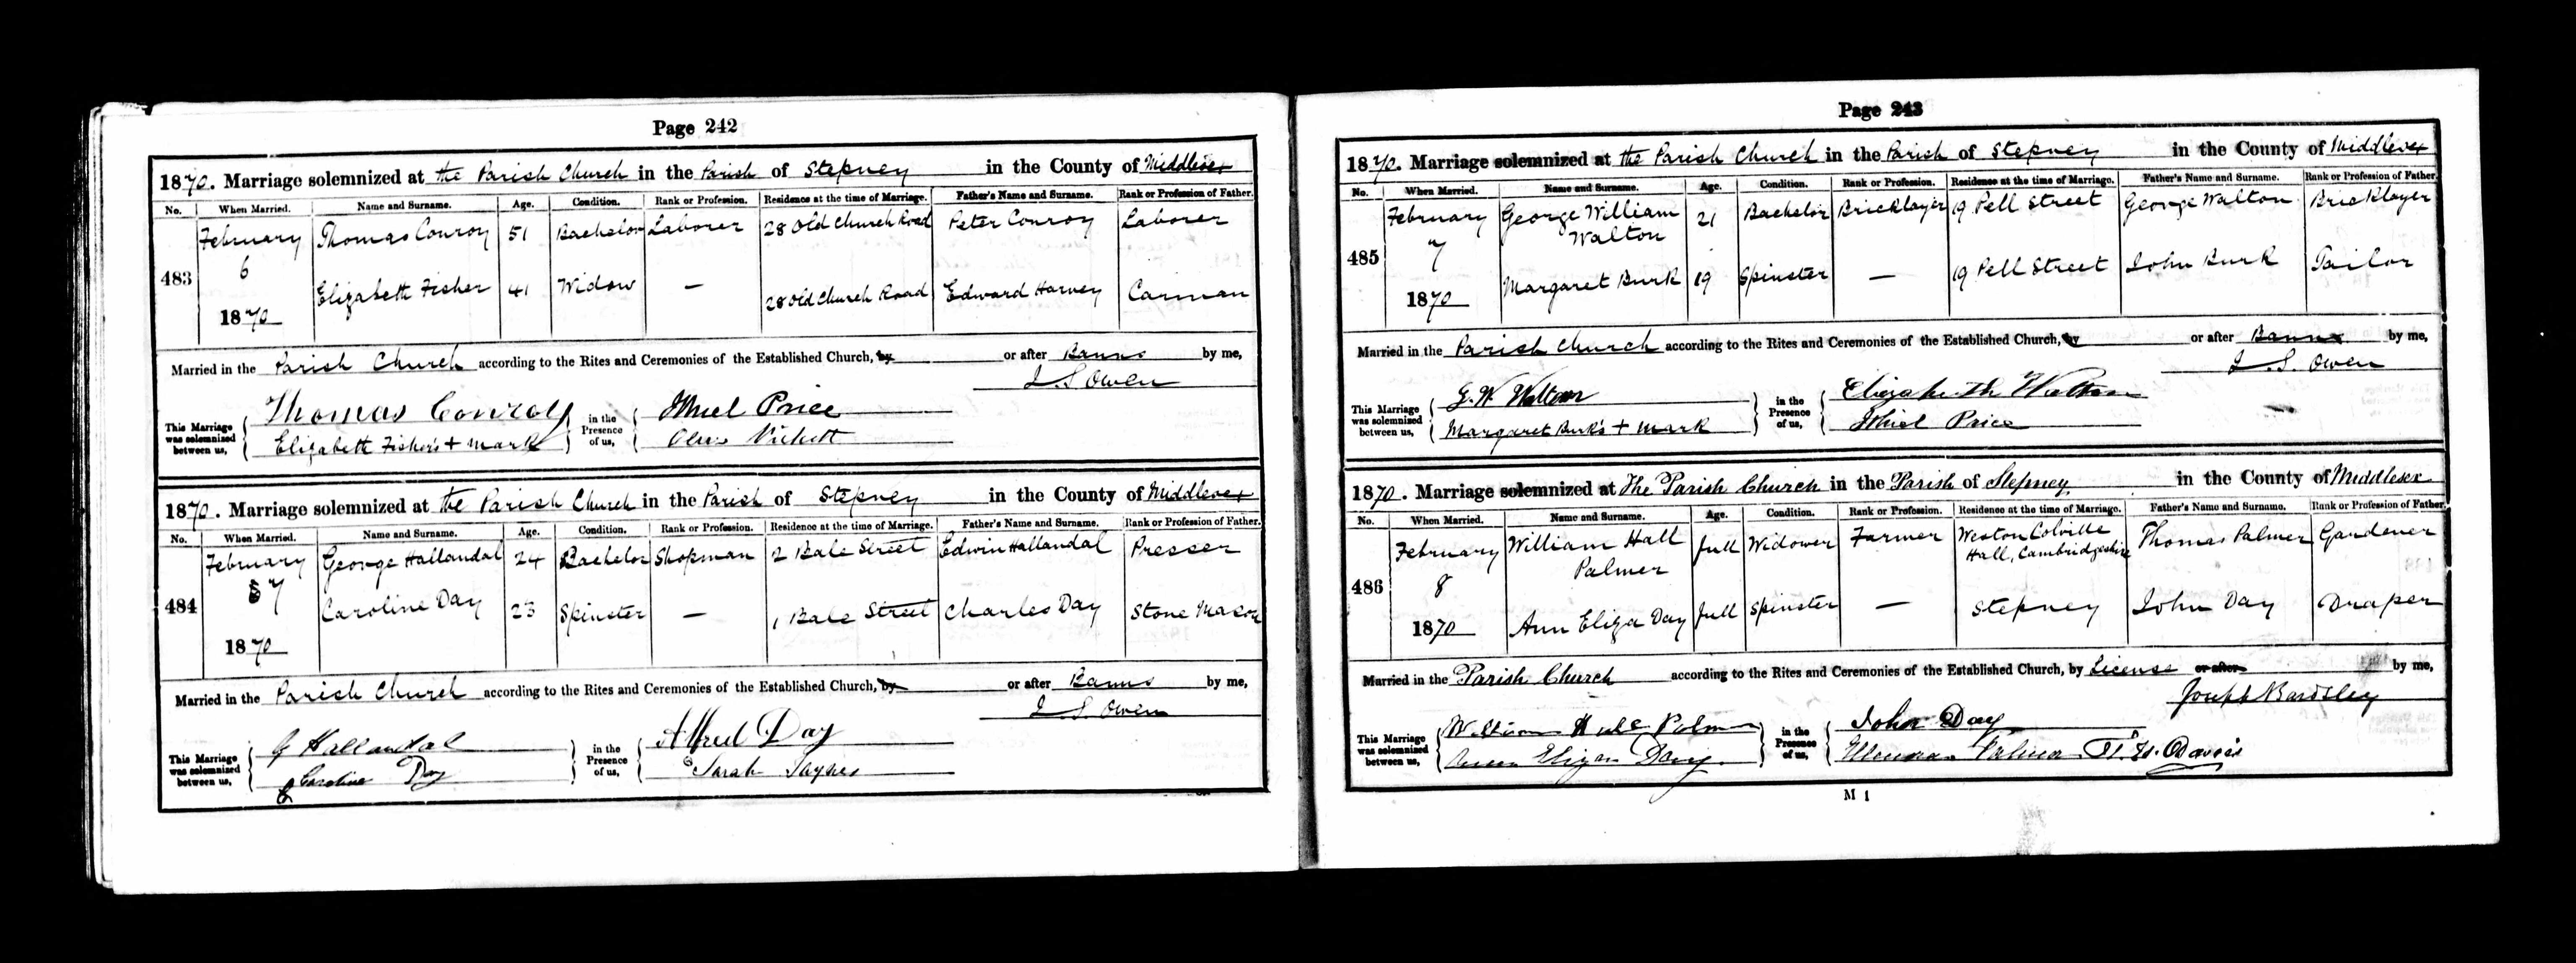 Page 242
1870. Marriage solemnized at the Parish Church in the Parish of Stepney in the County of Middlesex
No. When Married. Name and Surname. Age. Condition. Rank or Profession. Residence at the time of Marriage. Father's Name and Surname. Rank or Profession of Father.
483 February 6 1870 Thomas Conroy 51 Bachelor Laborer 28 Old Church Road Peter Conroy Laborer
Elizabeth Fisher 41 Widow — 28 Old Church Road Edward Harvey Carman
Married in the Parish Church according to the Rites and Ceremonies of the Established Church, by or after Banns by me,
J. S. Owen
This Marriage was solemnized between us, Thomas Conroy in the Presence of us, Ithiel Price
Elizabeth Fisher's + mark
1870. Marriage solemnized at the Parish Church in the Parish of Stepney in the County of Middlesex
No. When Married. Name and Surname. Age. Condition. Rank or Profession. Residence at the time of Marriage. Father's Name and Surname. Rank or Profession of Father.
484 February 7 1870 George Hallandal 24 Bachelor Shopman 2 Bale Street Edwin Hallandal Presser
Caroline Day 23 Spinster — 1 Bale Street Charles Day Stone Mason
Married in the Parish Church according to the Rites and Ceremonies of the Established Church, by or after Banns by me,
J. S. Owen
This Marriage was solemnized between us, G Hallandal in the Presence of us, Alfred Day
Caroline Day Sarah
Page 243
1870. Marriage solemnized at the Parish Church in the Parish of Stepney in the County of Middlesex
No. When Married. Name and Surname. Age. Condition. Rank or Profession. Residence at the time of Marriage. Father's Name and Surname. Rank or Profession of Father.
485 February 7 1870 George William Walton 21 Bachelor Bricklayer 19 Pell Street George Walton Bricklayer
Margaret Burk 19 Spinster — 19 Pell Street John Burk Tailor
Married in the Parish Church according to the Rites and Ceremonies of the Established Church, by or after Banns by me,
J. S. Owen
This Marriage was solemnized between us, G. W Walton in the Presence of us, Elizabeth Walton
Margaret Burk's + mark Ithiel Price
1870. Marriage solemnized at The Parish Church in the Parish of Stepney in the County of Middlesex
No. When Married. Name and Surname. Age. Condition. Rank or Profession. Residence at the time of Marriage. Father's Name and Surname. Rank or Profession of Father.
486 February 8 1870 William Hall Palmer full Widower Farmer Weston Colville Hall, Cambridgeshire Thomas Palmer Gardener
Ann Eliza Day full Spinster — Stepney John Day Draper
Married in the Parish Church according to the Rites and Ceremonies of the Established Church, by License or after by me,
Joseph Bardsley
This Marriage was solemnized between us, William Hall Palmer in the Presence of us, John Day
Ann Eliza Day Palmer Davis
M 1